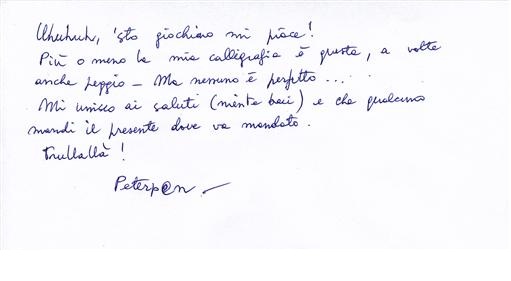 Uhuhuh, 'sto giochino mi piace!
Più o meno la mia calligrafia è questa, a volte
anche peggio - Ma nessuno è perfetto....
Mi unisco ai saluti (niente baci) e che qualcuno
mandi il presente dove va mandato.
Trullallà!
Peterp@n